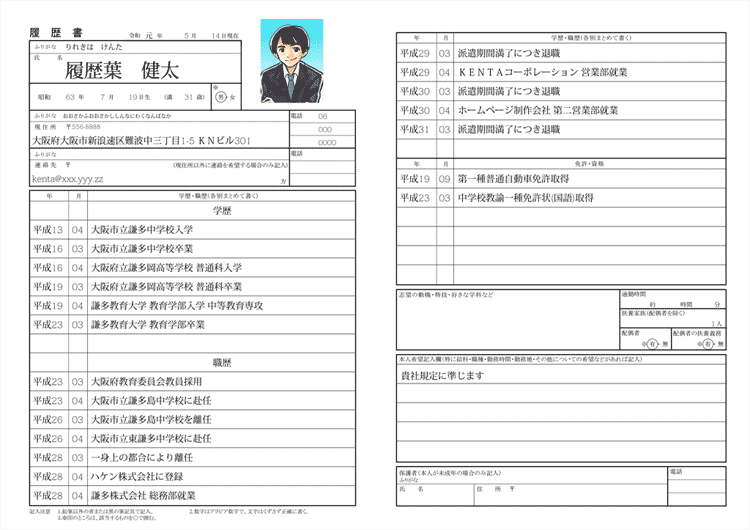 履歴書
令和 元 年 5 月 14 日現在
ふりがな りれきは けんた
氏 名
履歴葉 健太
昭和 63 年 7 月 19 日生 (満 31 歳)
※
男・女
ふりがな おおさかふおおさかししんなにわくなんばなか
現住所 〒556-8888
大阪府大阪市新浪速区難波中三丁目1-5 KNビル301
電話 06
000
0000
ふりがな
連絡先 〒 (現住所以外に連絡を希望する場合のみ記入)
kenta@xxx.yyy.zz
方
電話
年 月 学歴・職歴(各別まとめて書く)
学歴
平成13 04 大阪市立謙多中学校入学
平成16 03 大阪市立謙多中学校卒業
平成16 04 大阪府立謙多岡高等学校 普通科入学
平成19 03 大阪府立謙多岡高等学校 普通科卒業
平成19 04 謙多教育大学 教育学部入学 中等教育専攻
平成23 03 謙多教育大学 教育学部卒業
職歴
平成23 03 大阪府教育委員会教員採用
平成23 04 大阪市立謙多島中学校に赴任
平成26 03 大阪市立謙多島中学校を離任
平成26 04 大阪市立東謙多中学校に赴任
平成28 03 一身上の都合により離任
平成28 04 ハケン株式会社に登録
平成28 04 謙多株式会社 総務部就業
記入注意 1.鉛筆以外の青または黒の筆記具で記入。 2.数字はアラビア数字で、文字はくずさず正確に書く。
3.※印のところは、該当するものを○で囲む。
年 月 学歴・職歴(各別まとめて書く)
平成29 03 派遣期間満了につき退職
平成29 04 KENTAコーポレーション 営業部就業
平成30 03 派遣期間満了につき退職
平成30 04 ホームページ制作会社 第二営業部就業
平成31 03 派遣期間満了につき退職
年 月 免許・資格
平成19 09 第一種普通自動車免許取得
平成23 03 中学校教諭一種免許状(国語)取得
志望の動機・特技・好きな学科など
通勤時間
約 時間 分
扶養家族(配偶者を除く)
1人
配偶者
※有・無
配偶者の扶養義務
※有・無
本人希望記入欄(特に給料・職種・勤務時間・勤務地・その他についての希望などがあれば記入)
貴社規定に準じます
保護者(本人が未成年の場合のみ記入)
ふりがな
氏 名 住 所 〒
電話